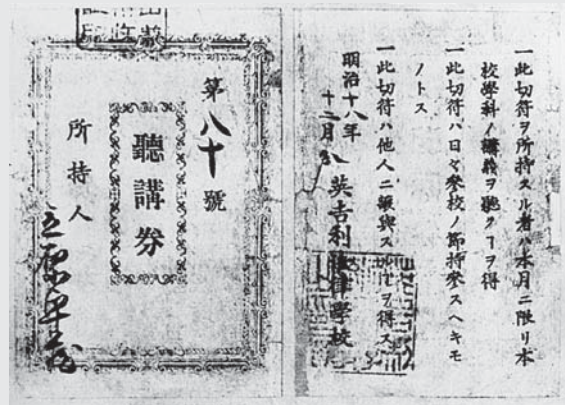 一此切符ヲ所持スル者ハ本月ニ限リ本
校學科ノ講義ヲ聽クヿヲ得
一此切符ハ日々參校ノ節持參スヘキモ
ノトス
一此切符ハ他人ニ讓與スルヿヲ得ス
明治十八年
十二月
英吉利法律學校
第八十號
聽講券
所持人